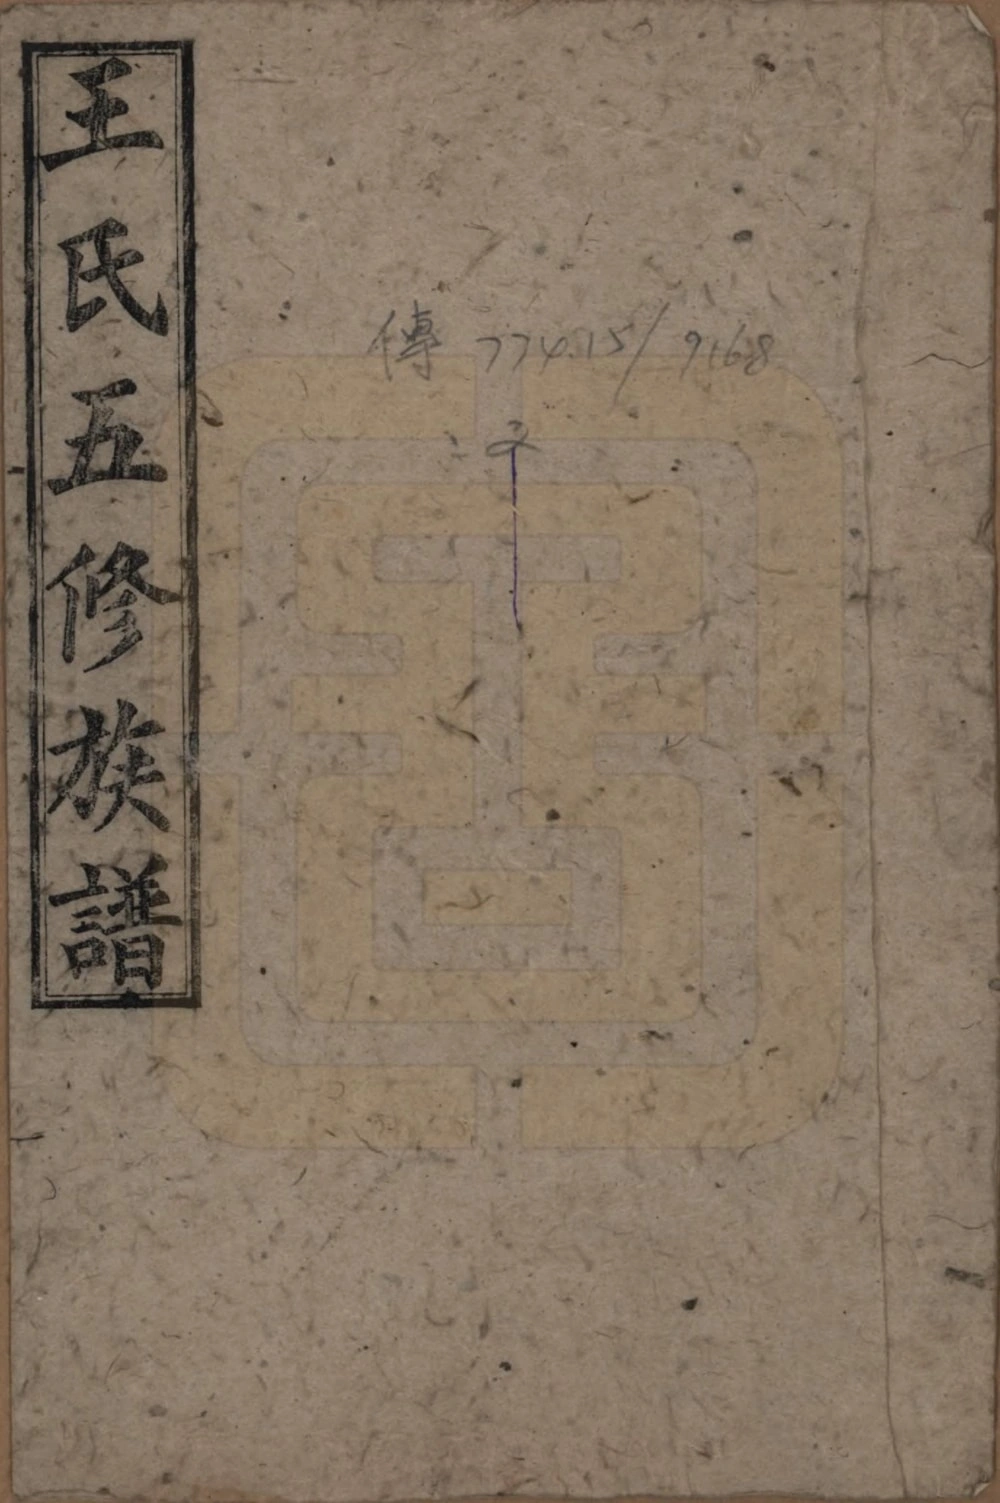 王氏五修族譜
傳 774.15/9168